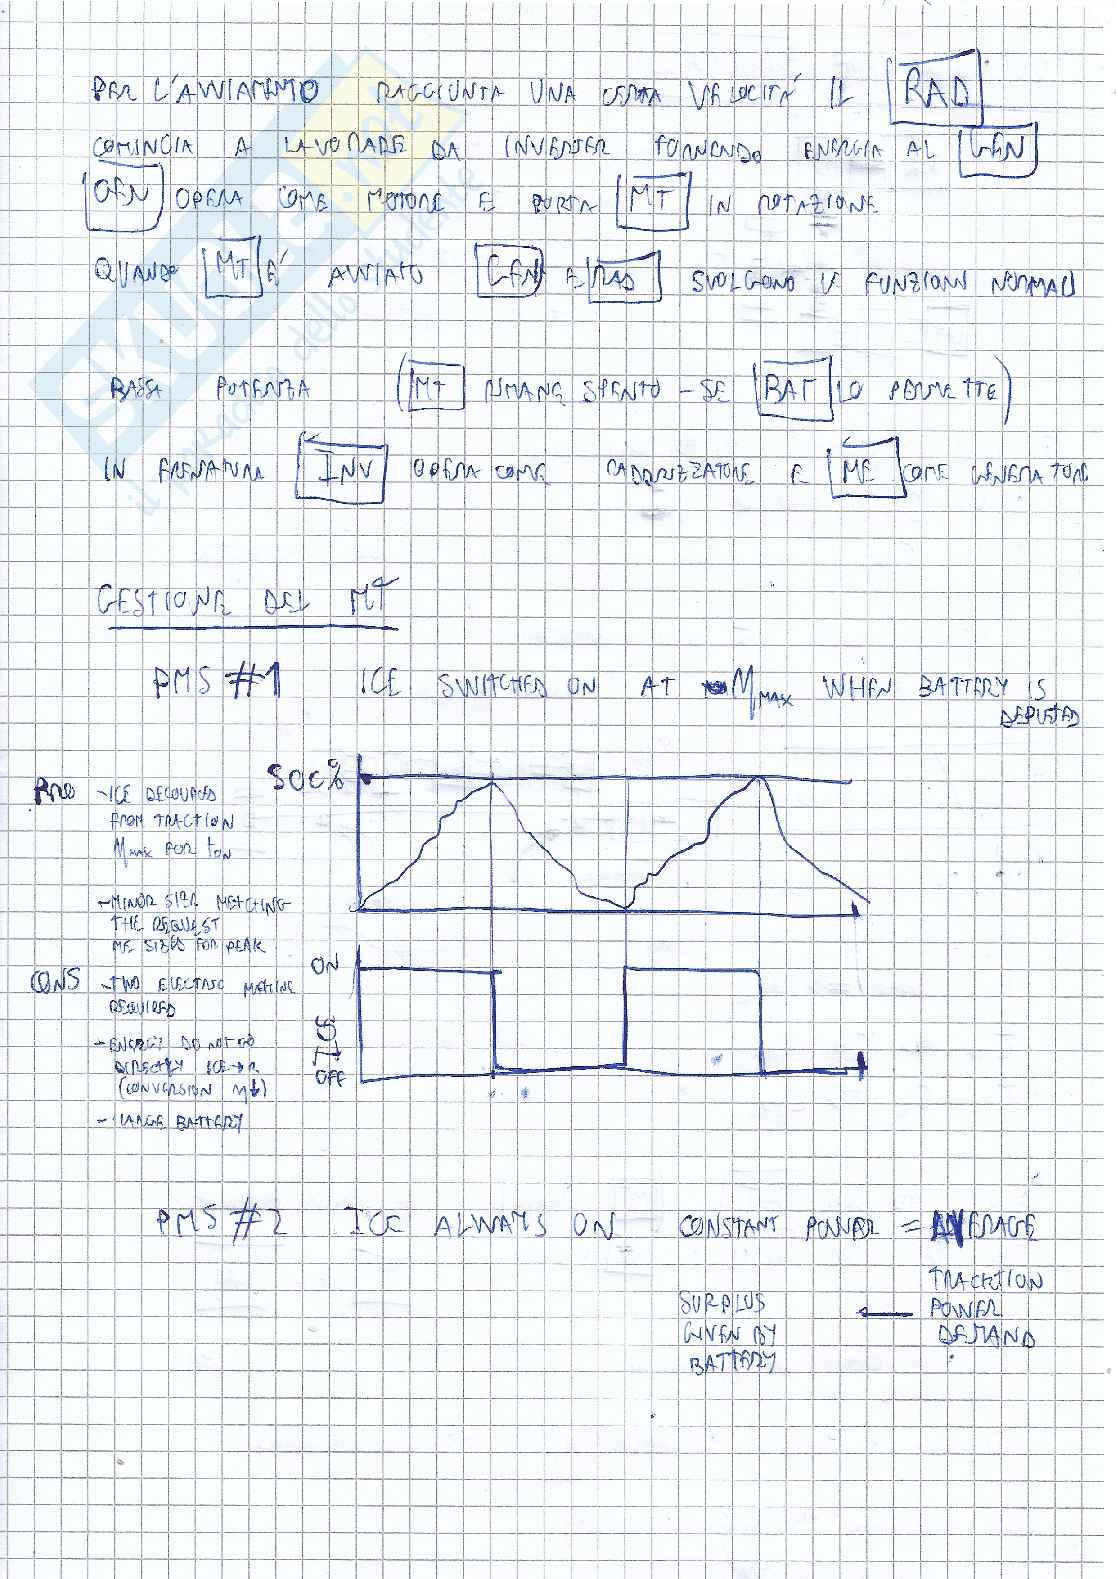 PER L'AVVIAMENTO RAGGIUNTA UNA CERTA VELOCITÀ IL RAD
COMINCIA A LAVORARE DA INVERTER FORNENDO ENERGIA AL GEN
GEN OPERA COME MOTORE E PORTA MT IN ROTAZIONE
QUANDO MT E' AVVIATO GEN E RAD SVOLGONO LE FUNZIONI NORMALI
BASSA POTENZA (MT RIMANE SPENTO - SE BAT LO PERMETTE)
IN FRENATURA INV OPERA COME RADDRIZZATORE E ME COME GENERATORE
GESTIONE DEL MT
PMS #1 ICE SWITCHED ON AT ηMAX WHEN BATTERY IS
DEPLETED
SOC%
PRO - ICE DECOUPLED
FROM TRACTION
ηMAX FOR tON
- MINOR SIZE METCHING
THE REQUEST
ME SIZED FOR PEAK
CONS - TWO ELECTRIC MACHINE
REQUIRED
- ENERGY DO NOT GO
DIRECTLY ICE→R
(CONVERSION η↓)
- LARGE BATTERY
ON
OFF
PMS #2 ICE ALWAYS ON CONSTANT POWER = AVERAGE
TRACTION
POWER
DEMAND
SURPLUS
GIVEN BY
BATTERY